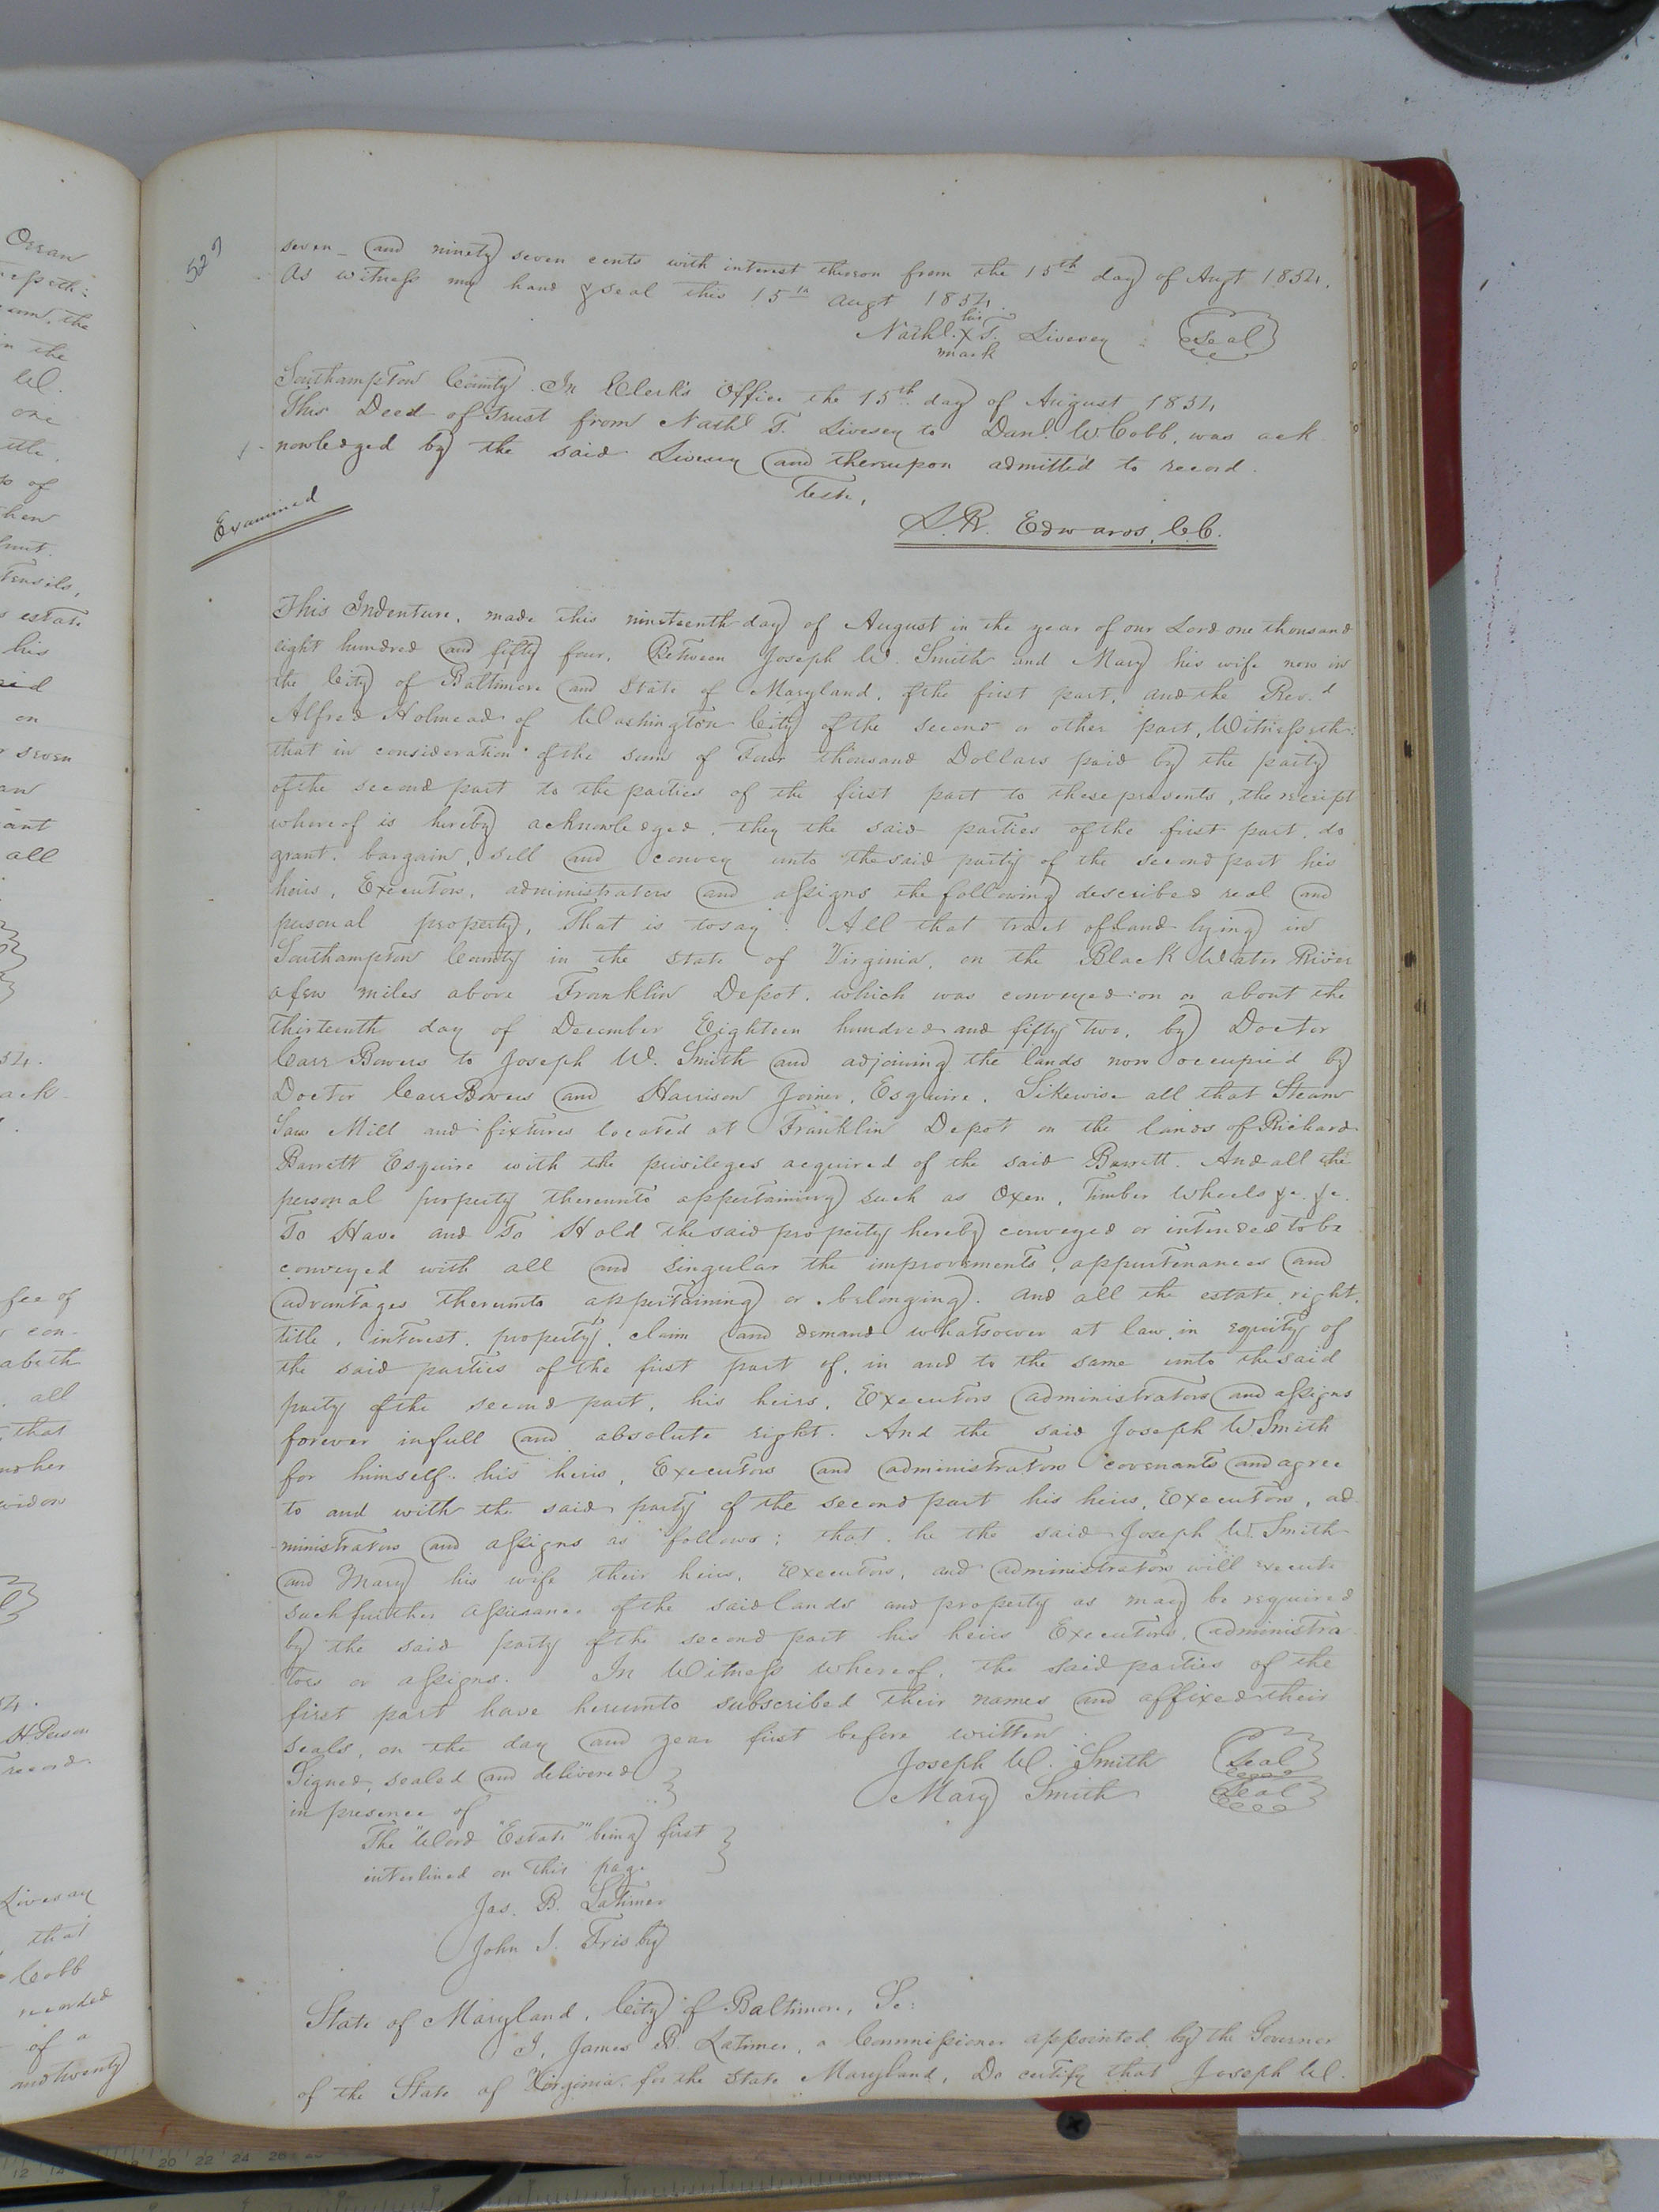 527
seven and ninety seven cents with interest thereon from the 15th day of Augt 1854.
As witness my hand & seal this 15th Augt 1854.
his
Nathl. X T. Livesay Seal
mark
Southampton County. In Clerk's Office the 15th day of August 1854
This Deed of Trust from Nathl T. Livesay to Danl. W Cobb, was ack
nowledged by the said Livesay and thereupon admitted to record.
Teste,
Examined
L. R. Edwards, C.C.
This Indenture, made this nineteenth day of August in the year of our Lord one thousand
eight hundred and fifty four, Between Joseph W. Smith and Mary his wife now in
the City of Baltimore and State of Maryland, of the first part, and the Revd
Alfred Holmead of Washington City of the second or other part, Witnesseth:
that in consideration of the sum of Four thousand Dollars paid by the party
of the second part to the parties of the first part to these presents, the receipt
whereof is hereby acknowledged, they the said parties of the first part, do
grant, bargain, sell and convey unto the said party of the second part his
heirs, Executors, administrators and assigns the following described real and
personal property, That is to say: All that tract of land lying in
Southampton County in the State of Virginia, on the Black Water River
a few miles above Franklin Depot, which was conveyed on or about the
thirteenth day of December Eighteen hundred and fifty two, by Doctor
Carr Bowers to Joseph W. Smith and adjoining the lands now occupied by
Doctor Carr Bowers and Harrison Joiner, Esquire. Likewise all that Steam
Saw Mill and fixtures located at Franklin Depot on the lands of Richard
Barrett Esquire with the privileges acquired of the said Barrett. And all the
personal property thereunto appertaining such as Oxen, Timber Wheels &c. &c.
To Have and To Hold the said property hereby conveyed or intended to be
conveyed with all and singular the improvements, appurtenances and
advantages thereunto appertaining or belonging. And all the estate, right,
title, interest, property, claim and demand whatsoever at law in equity of
the said parties of the first part of, in and to the same unto the said
party of the second part, his heirs, Executors administrators and assigns
forever in full and absolute right. And the said Joseph W Smith
for himself his heirs, Executors and administrators covenants and agree
to and with the said party of the second part his heirs, Executors, ad
ministrators and assigns as follows: that he the said Joseph W. Smith
and Mary his wife their heirs, Executors, and administrators will execute
such further assurance of the said lands and property as may be required
by the said party of the second part his heirs Executors, administra
tors or assigns. In Witness whereof, the said parties of the
first part have hereunto subscribed their names and affixed their
seals, on the day and year first before written
Signed, sealed and delivered Joseph W. Smith Seal
in presence of Mary Smith Seal
The "Word "Estate" being first
interlined on this page
Jas. B. Latimer
John I. Frisby
State of Maryland, City of Baltimore, Sc:
I, James B. Latimer, a Commissioner appointed by the Governor
of the State of Virginia for the State Maryland, Do certify that Joseph W.